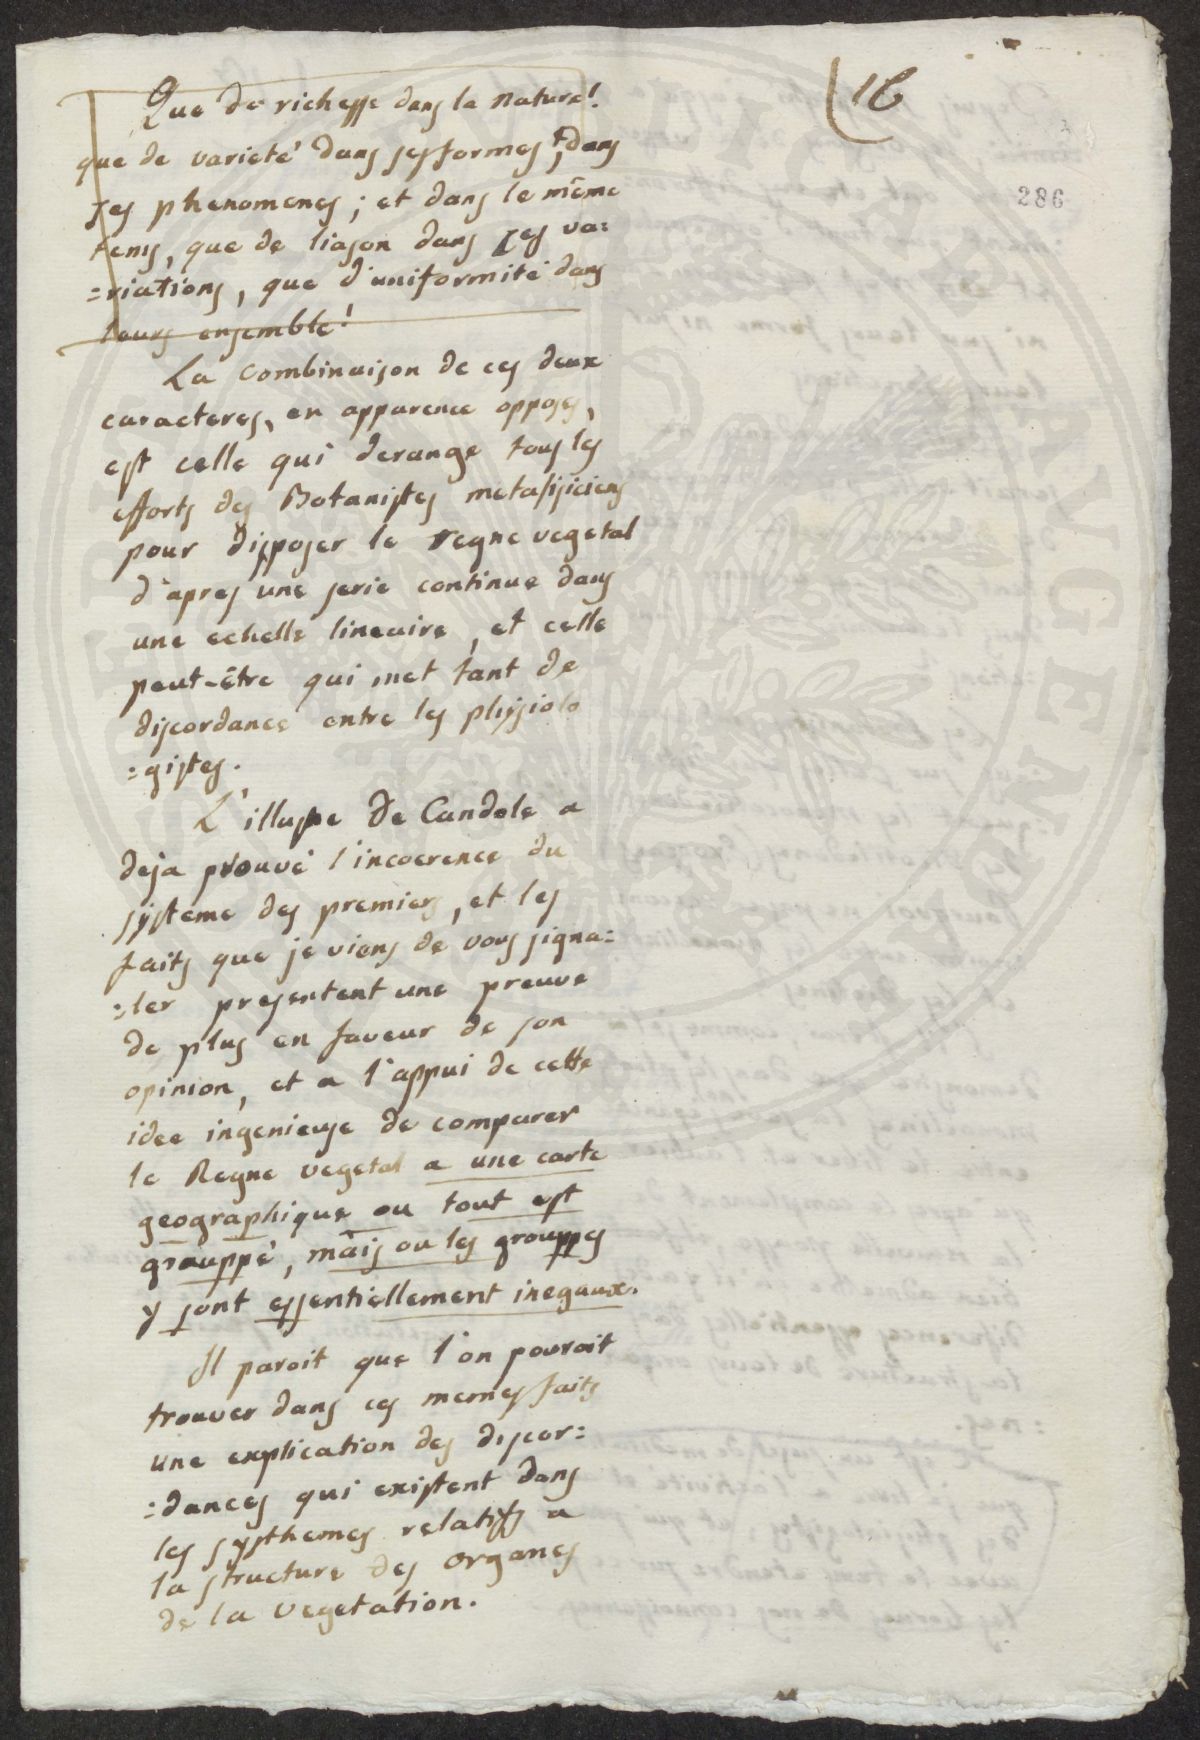 16
286
Que de richesse dans la nature!
que de varieté dans ses formes, dans
ses phenomenes; et dans le même
tems, que de liason dans ses va=
=riations, que d'uniformité dans
leurs ensemble!
La combinaison de ces deux
caracteres, en apparence opposes,
est celle qui derange tous les
efforts des Botanistes metafisiciens
pour disposer le regne vegetal
d'apres une serie continue dans
une echelle lineaire, et celle
peut-être qui met tant de
discordance entre les physiolo
=gistes.
L'illustre De Candole a
deja prouvé l'incoerence du
système des premiers, et les
faits que je viens de vous signa=
=ler presentent une preuve
de plus en faveur de son
opinion, et a l'appui de cette
idee ingenieuse de comparer
le Regne vegetal a une carte
geographique ou tout est
grouppé, mais ou les grouppes
y sont essentiellement inegaux.
Il paroit que l'on pouroit
trouver dans ces memes faits
une explication des discor=
=dances qui existent dans
les systhemes relatifs a
la structure des organes
de la vegetation.